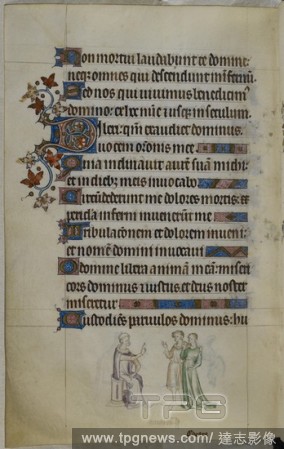 Non mortui laudabunt te domine:
neq; omnes qui descendunt in infernū.
Sed nos qui vivimus benedicim'
domino: ex hoc nūc et usq; in seculum.
Dilexi qm̄ exaudiet dominus
vocem orōnis mee.
Quia inclinavit aurē suā michi:
et in dieb; meis invocabo
Circūdederūt me dolores mortis: et
pericla inferni invenerūt me
Tribulaconem et dolorem inveni:
et nomē domini invocavi
O domine libera animā meā: miseri
cors dominus et iustus et deus noster
miseretur
Custodiēs parvulos dominus: hu
TPG
www.tpgnews.com / 達志影像